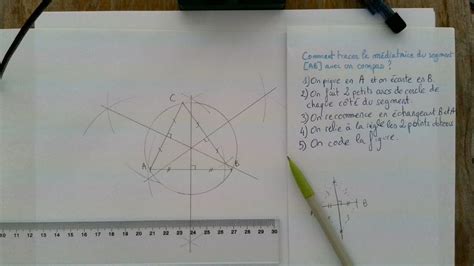 Comment tracer la médiatrice du segment
[AB] avec un compas ?
1) On pique en A et on écarte en B.
2) On fait 2 petits arcs de cercle de
chaque côté du segment.
3) On recommence en échangeant B et A.
4) On relie à la règle les 2 points obtenus.
5) On code la figure.
C
A
B
B
0 1 2 3 4 5 6 7 8 9 10 11 12 13 14 15 16 17 18 19 20 21 22 23 24 25 26 27 28 29 30